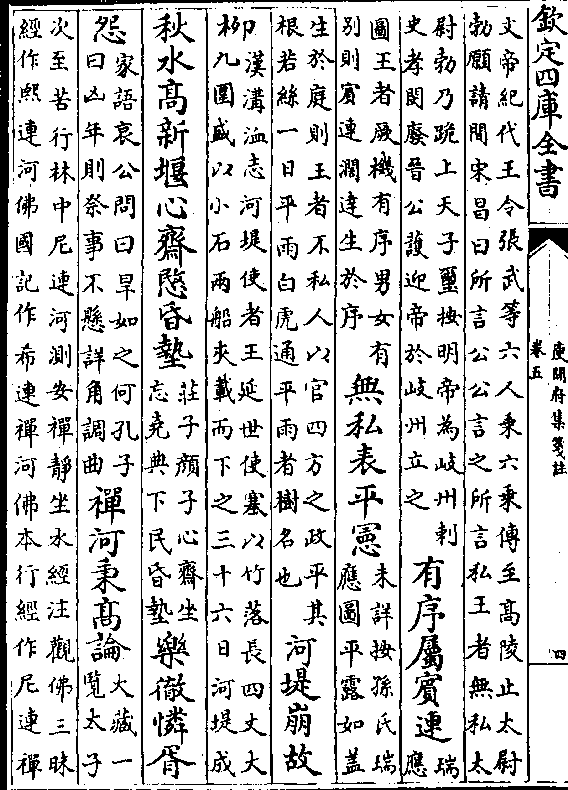 欽定四庫全書
庾開府集箋註
卷五
四
文帝紀代王令張武等六人乘六乘傳至髙陵止太尉
勃願請間宋昌曰所言公公言之所言私王者無私太
尉勃乃跪上天子璽按明帝為岐州刺
史孝閔廢晉公護迎帝於岐州立之
有序屬賓連
瑞應
圖王者厥機有序男女有
别則賓連濶達生於序
無私表平憲
未詳按孫氏瑞
應圖平露如葢
生於庭則王者不私人以官四方之政平其
根若絲一日平雨白虎通平雨者樹名也
河堤崩故
柳
卭漢溝洫志河堤使者王延世使塞以竹落長四丈大
九圍盛以小石兩船夾載而下之三十六日河堤成
秋水髙新堰心齋愍昏墊
莊子顔子心齋坐
忘堯典下民昏墊
樂徹憐胥
怨
家語哀公問曰旱如之何孔子
曰凶年則祭事不懸詳角調曲
禪河秉髙論
大藏一
覽太子
次至苦行林中尼連河測安禪靜坐水經注觀佛三昧
經作熙連河佛國記作希連禪河佛本行經作尼連禪